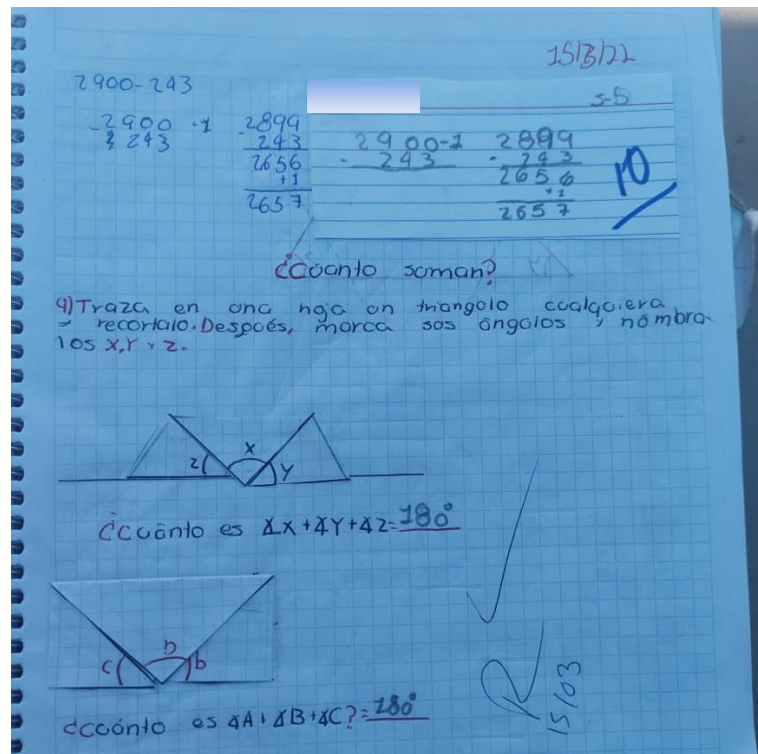 15/3/22
2900-243
-2900 -1
243
2899
- 243
2656
+1
2657
5-B
2900-1
- 243
2899
- 243
2656
+1
2657
10
¿Cuanto soman?
9) Traza en una hoja un triangolo coalquiera
y recortalo. Después, marca sos ángolos y nómbra-
los X, Y y Z.
Z X Y
¿Cuánto es ∡X+∡Y+∡Z=180°
c D b
¿cuánto es ∡A+∡B+∡C?=180°
15/03